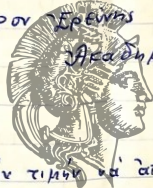 ρον Ἐρεύνης
Ἀκαδημ
ν τιμὴν νὰ